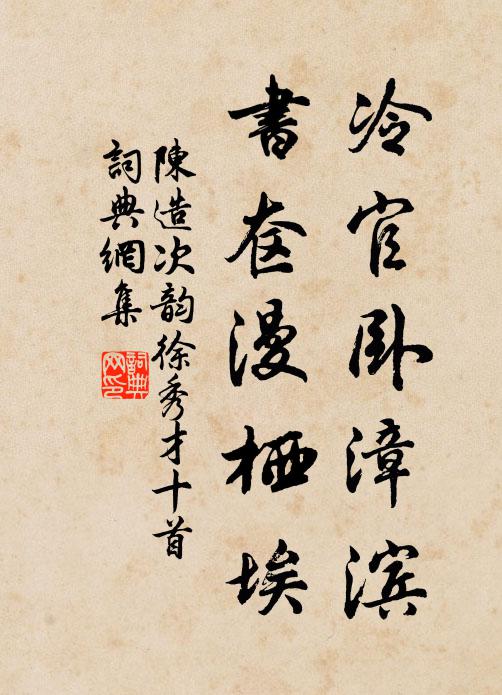 冷官卧漳滨
書奁漫栖埃
陳造次韵徐秀才十首
詞典網集
詞典網印